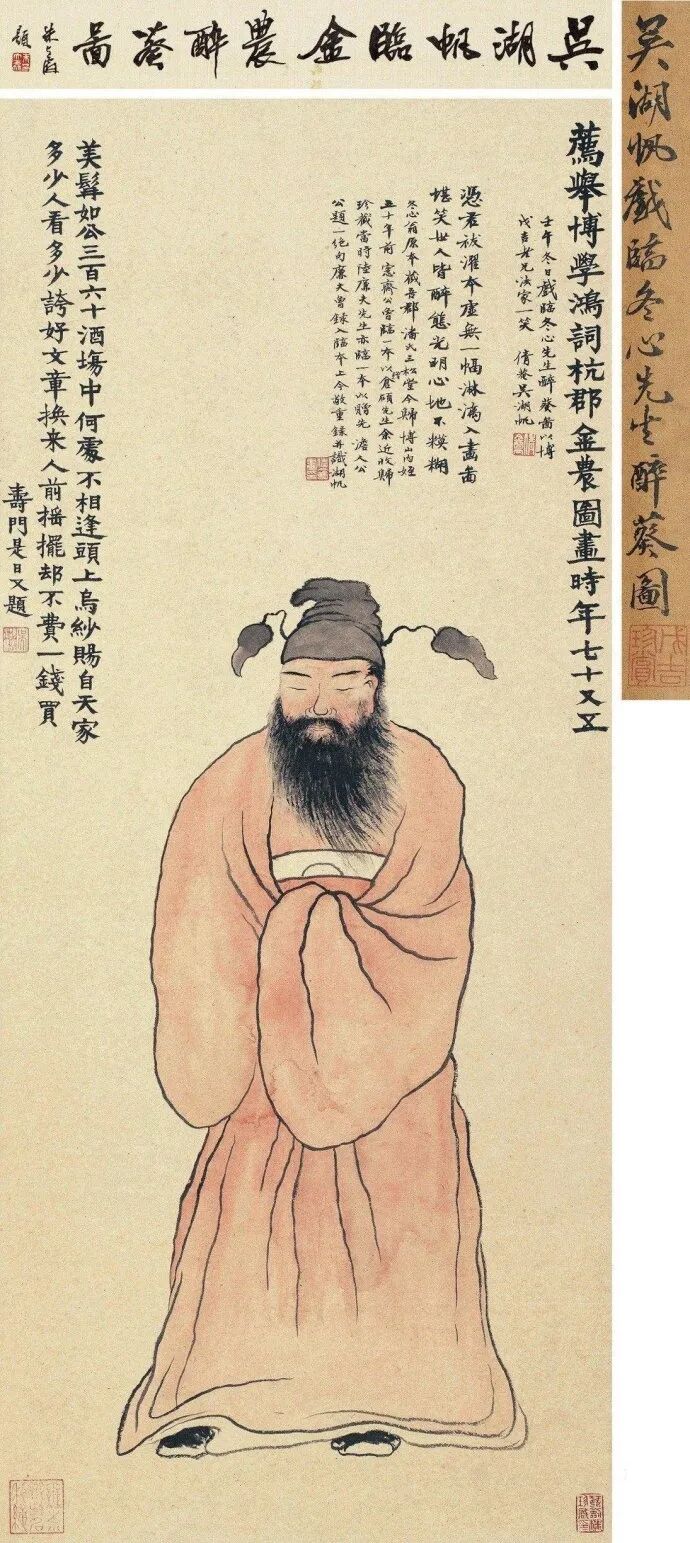 吴湖帆臨金農醉葵圖
題
薦舉博學鴻詞杭郡金農圖畫時年七十又五
壬午冬日戲臨冬心先生醉葵圖以博
戊吉老兄法家一笑 倩葵吴湖帆
憑君祓濯本虛無一幅淋漓入畫圖
堪笑世人皆醉態光明心地不糢糊
冬心翁原本藏吾郡潘氏三松堂今歸博山內姪
五十年前愙齋公曾臨一本以倉碩先生余近收歸
珍藏當時陸廉夫先生亦臨一本以贈先 人公
公題一絕句廉夫曾錄入臨本上今敬重錄并識湖帆
美髯如公三百六十酒場中何處不相逢頭上烏紗賜自天家
多少人看多少誇好文章換来人前摇擺却不費一錢買
壽門是日又題
吴湖帆戲臨冬心先生醉葵圖
戊吉珍賞